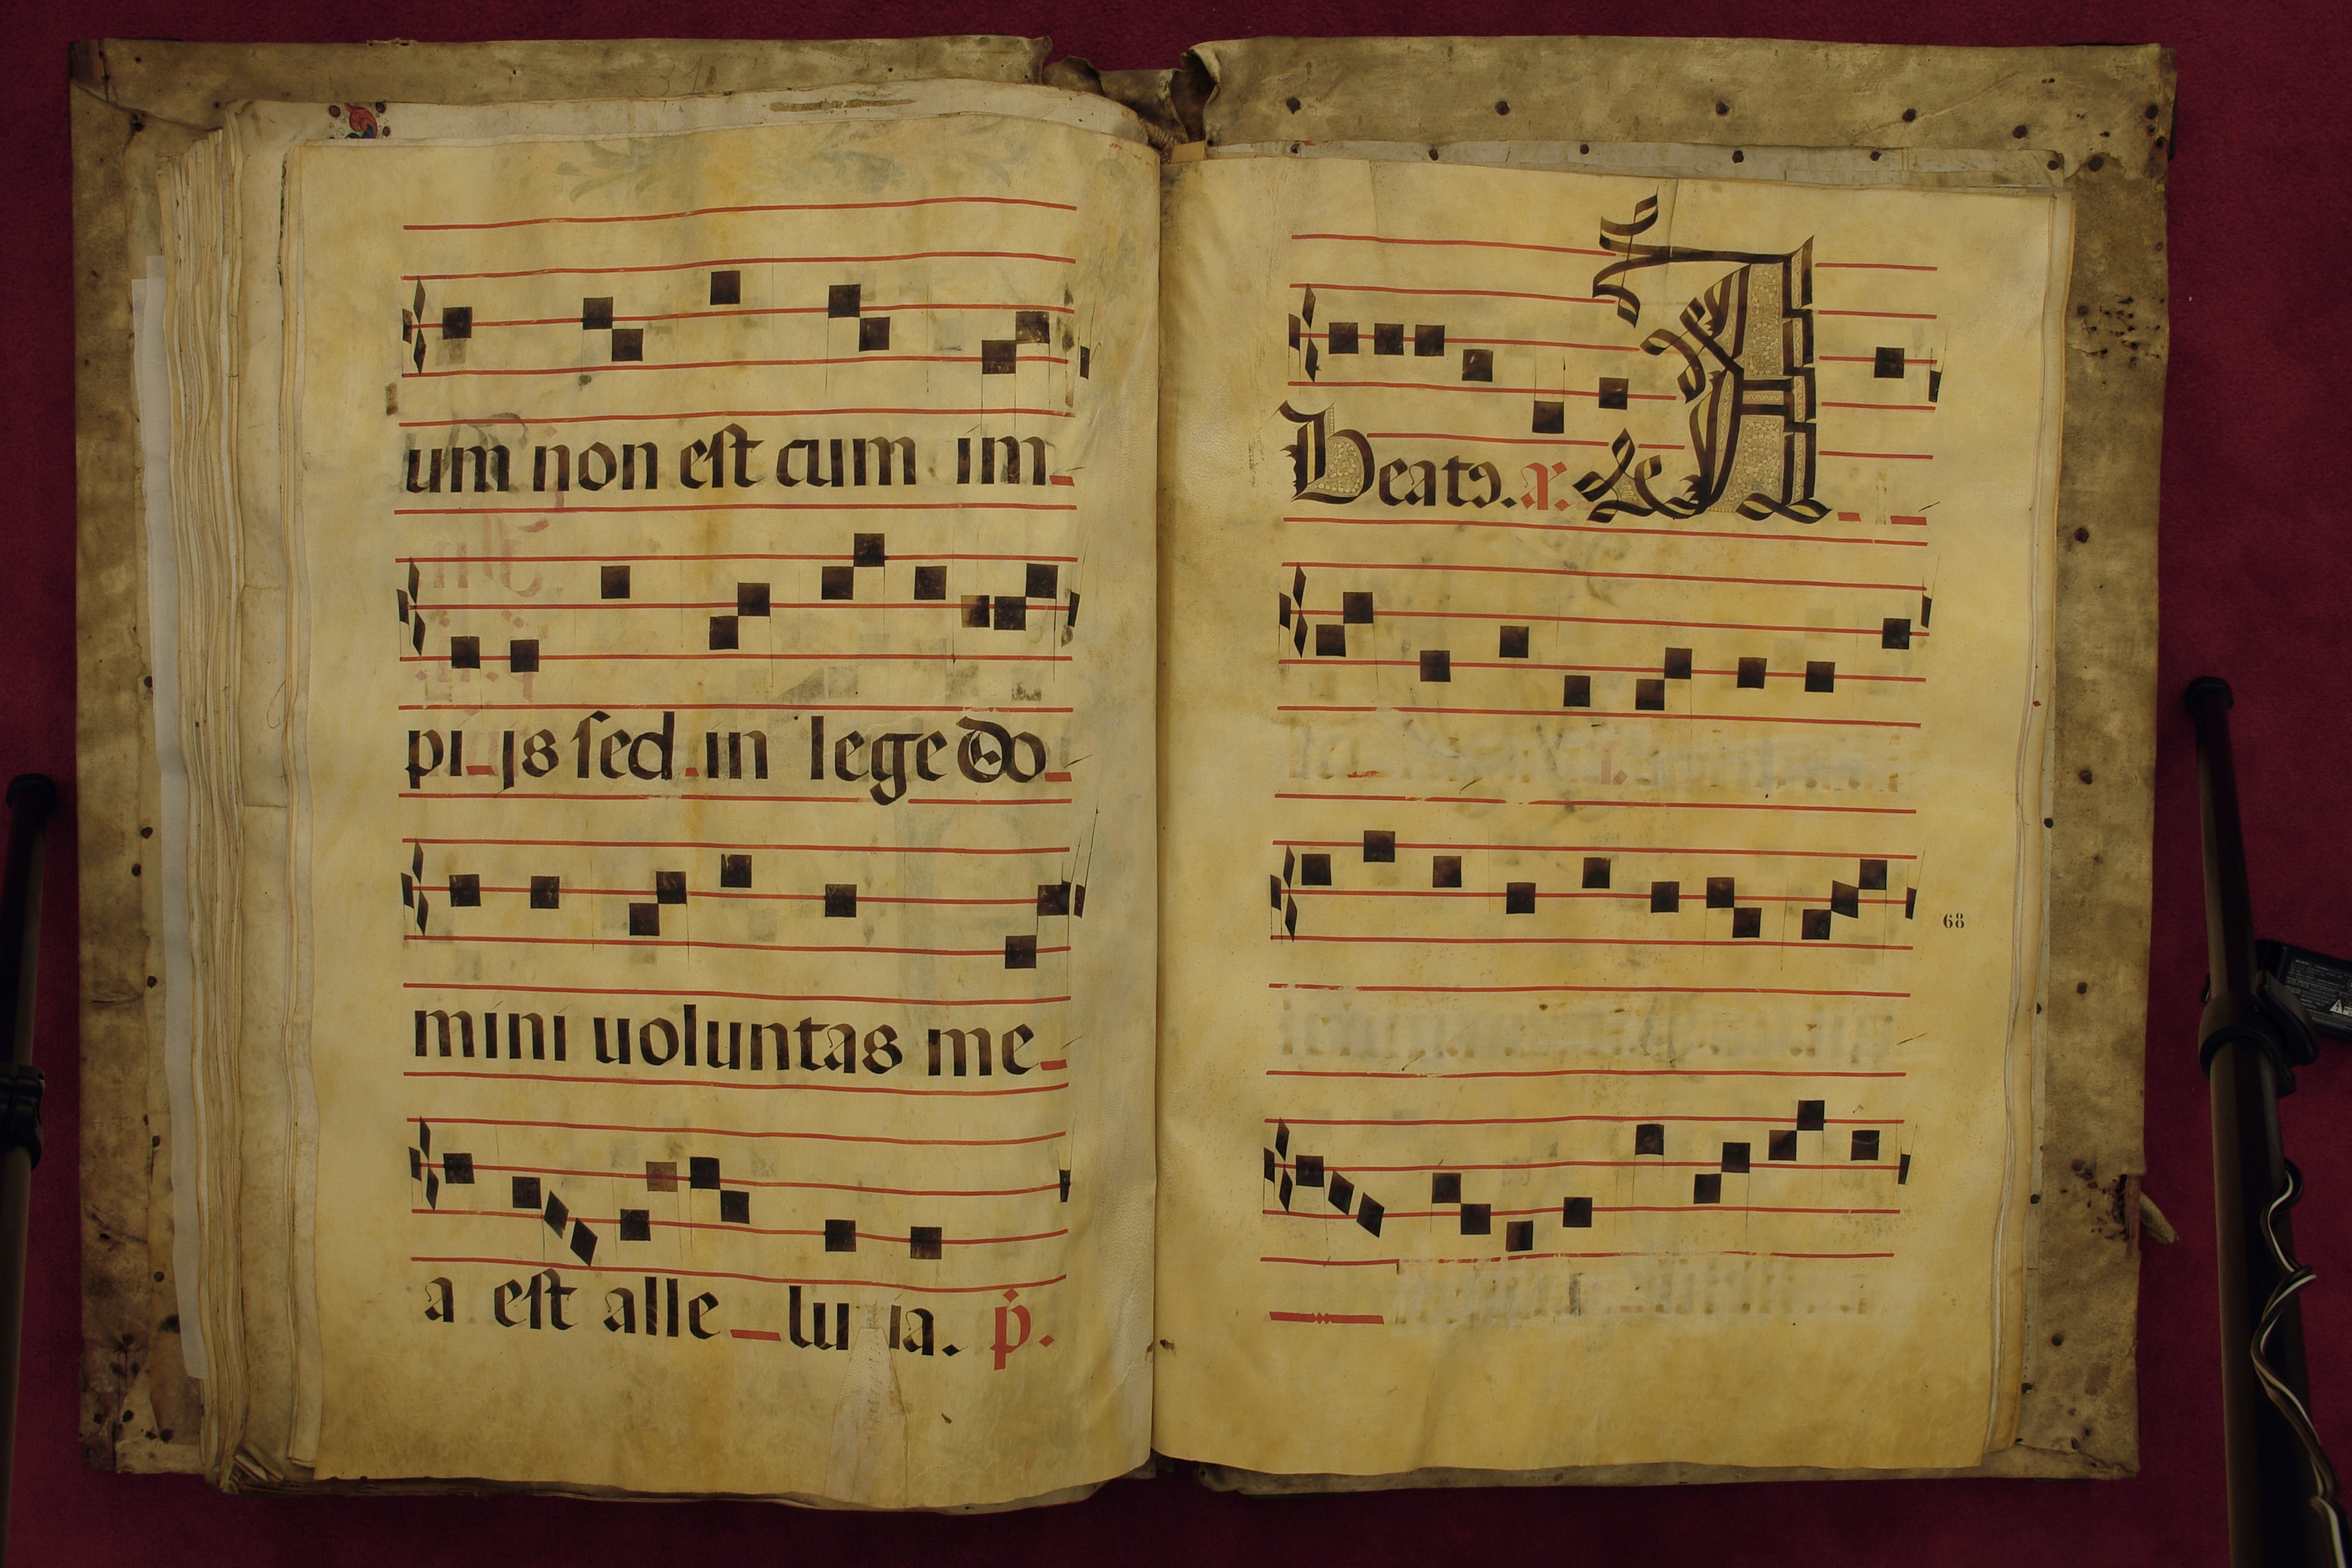 um non est cum im
pi js sed in lege Do
mini uoluntas me
a est alle lu ia. p.
Beatꝰ. A
68